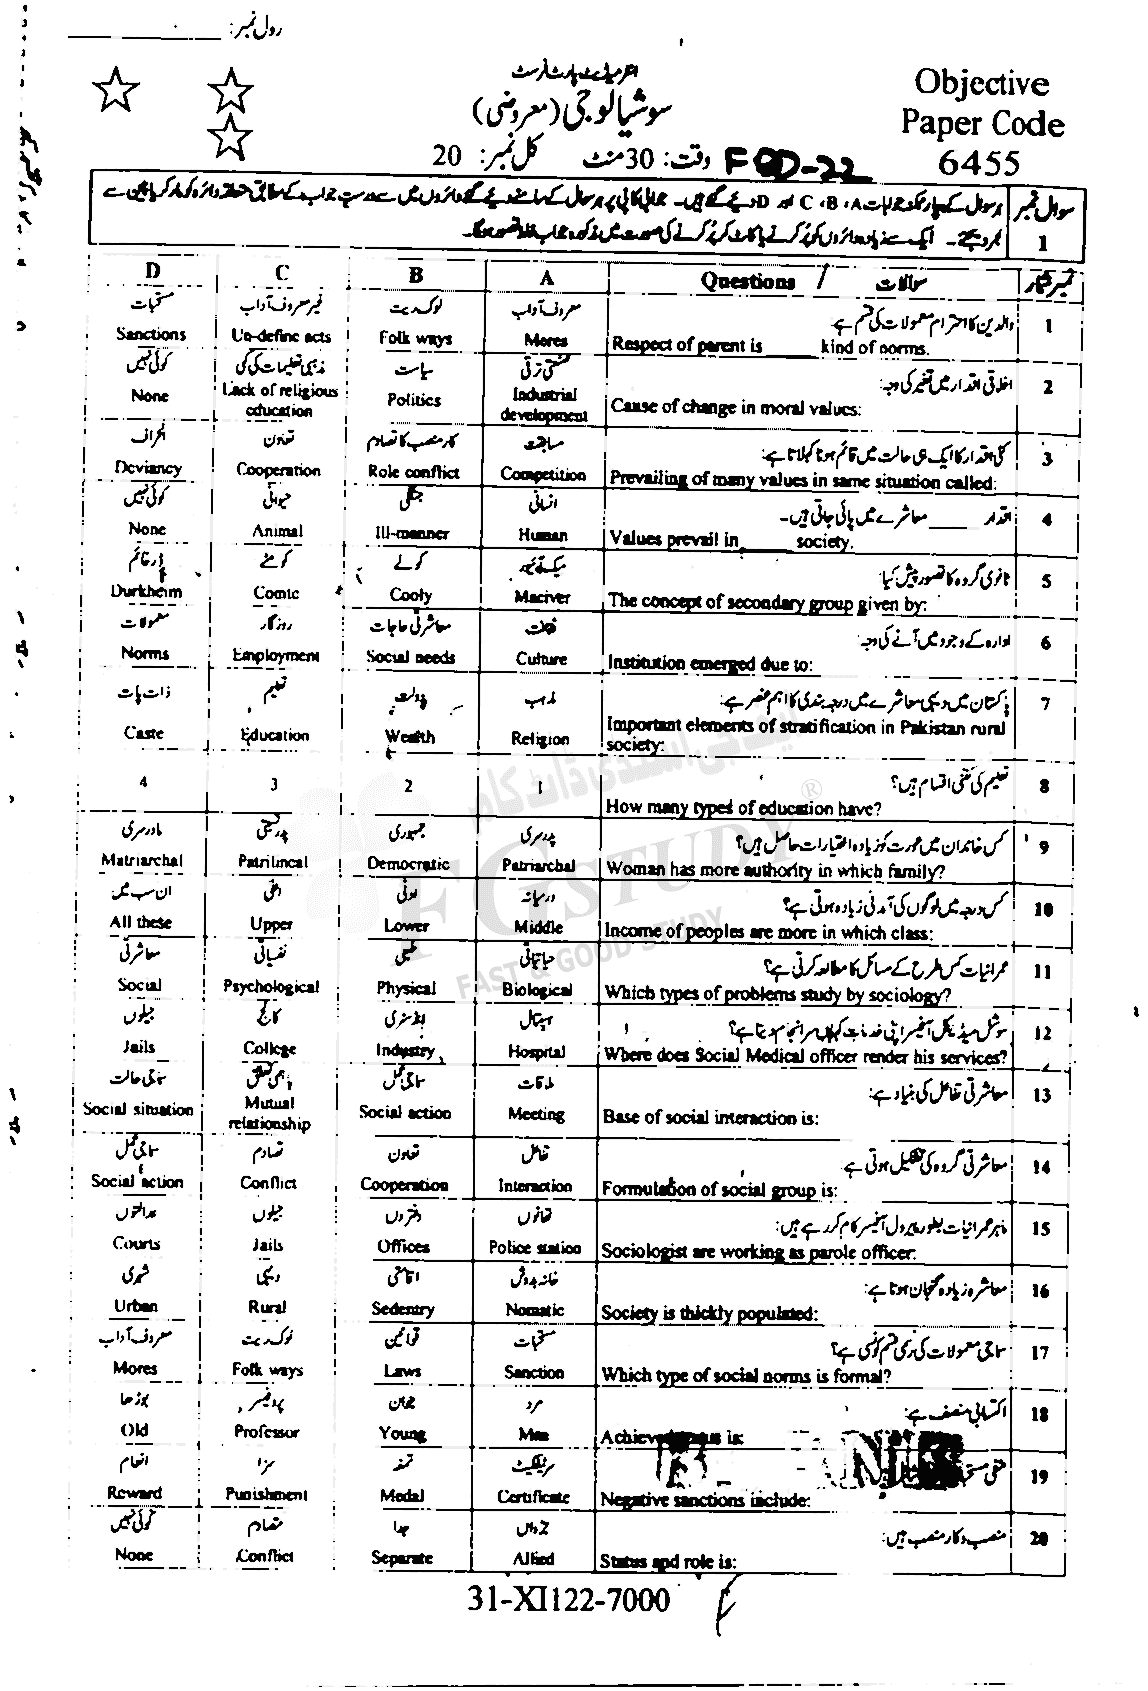 رول نمبر:
انٹرمیڈیٹ پارٹ فرسٹ
Objective
سوشیالوجی (معروضی)
Paper Code
وقت: 30 منٹ کل نمبر: 20
FQD-22
6455
سوال نمبر 1
ہر سوال کے چار ممکنہ جوابات A، B، C اور D دیئے گئے ہیں۔ جوابی کاپی پر ہر سوال کے سامنے دیئے گئے دائروں میں سے درست جواب کے مطابق متعلقہ دائرہ کو مارکر یا پین سے
بھر دیجئے۔ ایک سے زیادہ دائروں کو پُر کرنے یا کاٹ کر پُر کرنے کی صورت میں مذکورہ جواب غلط تصور ہوگا۔
D C B A Questions / سوالات نمبر شمار
مستحبات غیر معروف آداب لوک ریت معروف آداب والدین کا احترام معمولات کی قسم ہے: 1
Sanctions Un-define acts Folk ways Mores Respect of parent is ______ kind of norms.
کوئی نہیں مذہبی تعلیمات کی کمی سیاست صنعتی ترقی اخلاقی اقدار میں تغیر کی وجہ: 2
None Lack of religious education Politics Industrial development Cause of change in moral values:
انحراف تعاون کار منصب کا تصادم مسابقت کئی اقدار کا ایک ہی حالت میں قائم ہونا کہلاتا ہے: 3
Deviancy Cooperation Role conflict Competition Prevailing of many values in same situation called:
کوئی نہیں حیوانی جنگلی انسانی اقدار ______ معاشرے میں پائی جاتی ہیں۔ 4
None Animal Ill-manner Human Values prevail in ______ society.
ڈرخائم کومٹے کولے میکائیور ثانوی گروہ کا تصور پیش کیا: 5
Durkheim Comte Cooly Maciver The concept of secondary group given by:
معمولات روزگار معاشرتی حاجات ثقافت ادارہ کے وجود میں آنے کی وجہ: 6
Norms Employment Social needs Culture Institution emerged due to:
ذات پات تعلیم دولت مذہب پاکستان میں دیہی معاشرے میں درجہ بندی کا اہم عنصر ہے: 7
Caste Education Wealth Religion Important elements of stratification in Pakistan rural society:
4 3 2 1 تعلیم کی کتنی اقسام ہیں؟ 8
How many types of education have?
مادرسری پدرنسبی جمہوری پدرسری کس خاندان میں عورت کو زیادہ اختیارات حاصل ہیں؟ 9
Matriarchal Patrilineal Democratic Patriarchal Woman has more authority in which family?
ان سب میں اعلیٰ ادنیٰ درمیانہ کس درجہ میں لوگوں کی آمدنی زیادہ ہوتی ہے؟ 10
All these Upper Lower Middle Income of peoples are more in which class:
معاشرتی نفسیاتی طبیعی حیاتیاتی عمرانیات کس طرح کے مسائل کا مطالعہ کرتی ہے؟ 11
Social Psychological Physical Biological Which types of problems study by sociology?
جیلوں کالج انڈسٹری ہسپتال سوشل میڈیکل آفیسر اپنی خدمات کہاں سرانجام دیتا ہے؟ 12
Jails College Industry Hospital Where does Social Medical officer render his services?
سماجی حالت باہمی تعلق سماجی عمل ملاقات معاشرتی تفاعل کی بنیاد ہے: 13
Social situation Mutual relationship Social action Meeting Base of social interaction is:
سماجی عمل تصادم تعاون تفاعل معاشرتی گروہ کی تشکیل ہوتی ہے: 14
Social action Conflict Cooperation Interaction Formulation of social group is:
عدالتوں جیلوں دفتروں تھانوں ماہر عمرانیات بطور پیرول آفیسر کام کر رہے ہیں: 15
Courts Jails Offices Police station Sociologist are working as parole officer:
شہری دیہی اقامتی خانہ بدوش معاشرہ زیادہ گنجان ہوتا ہے: 16
Urban Rural Sedentry Nomatic Society is thickly populated:
معروف آداب لوک ریت قوانین مستحبات سماجی معمولات کی رسمی قسم کونسی ہے؟ 17
Mores Folk ways Laws Sanction Which type of social norms is formal?
بوڑھا پروفیسر جوان مرد اکتسابی منصف ہے: 18
Old Professor Young Man Achieved is:
انعام سزا تمغہ سرٹیفکیٹ منفی 19
Reward Punishment Medal Certificate Negative sanctions include:
کوئی نہیں تصادم جدا جڑواں منصب و کار منصب ہیں: 20
None Conflict Separate Allied Status and role is:
31-XI122-7000
FG STUDY ®
FAST & GOOD STUDY